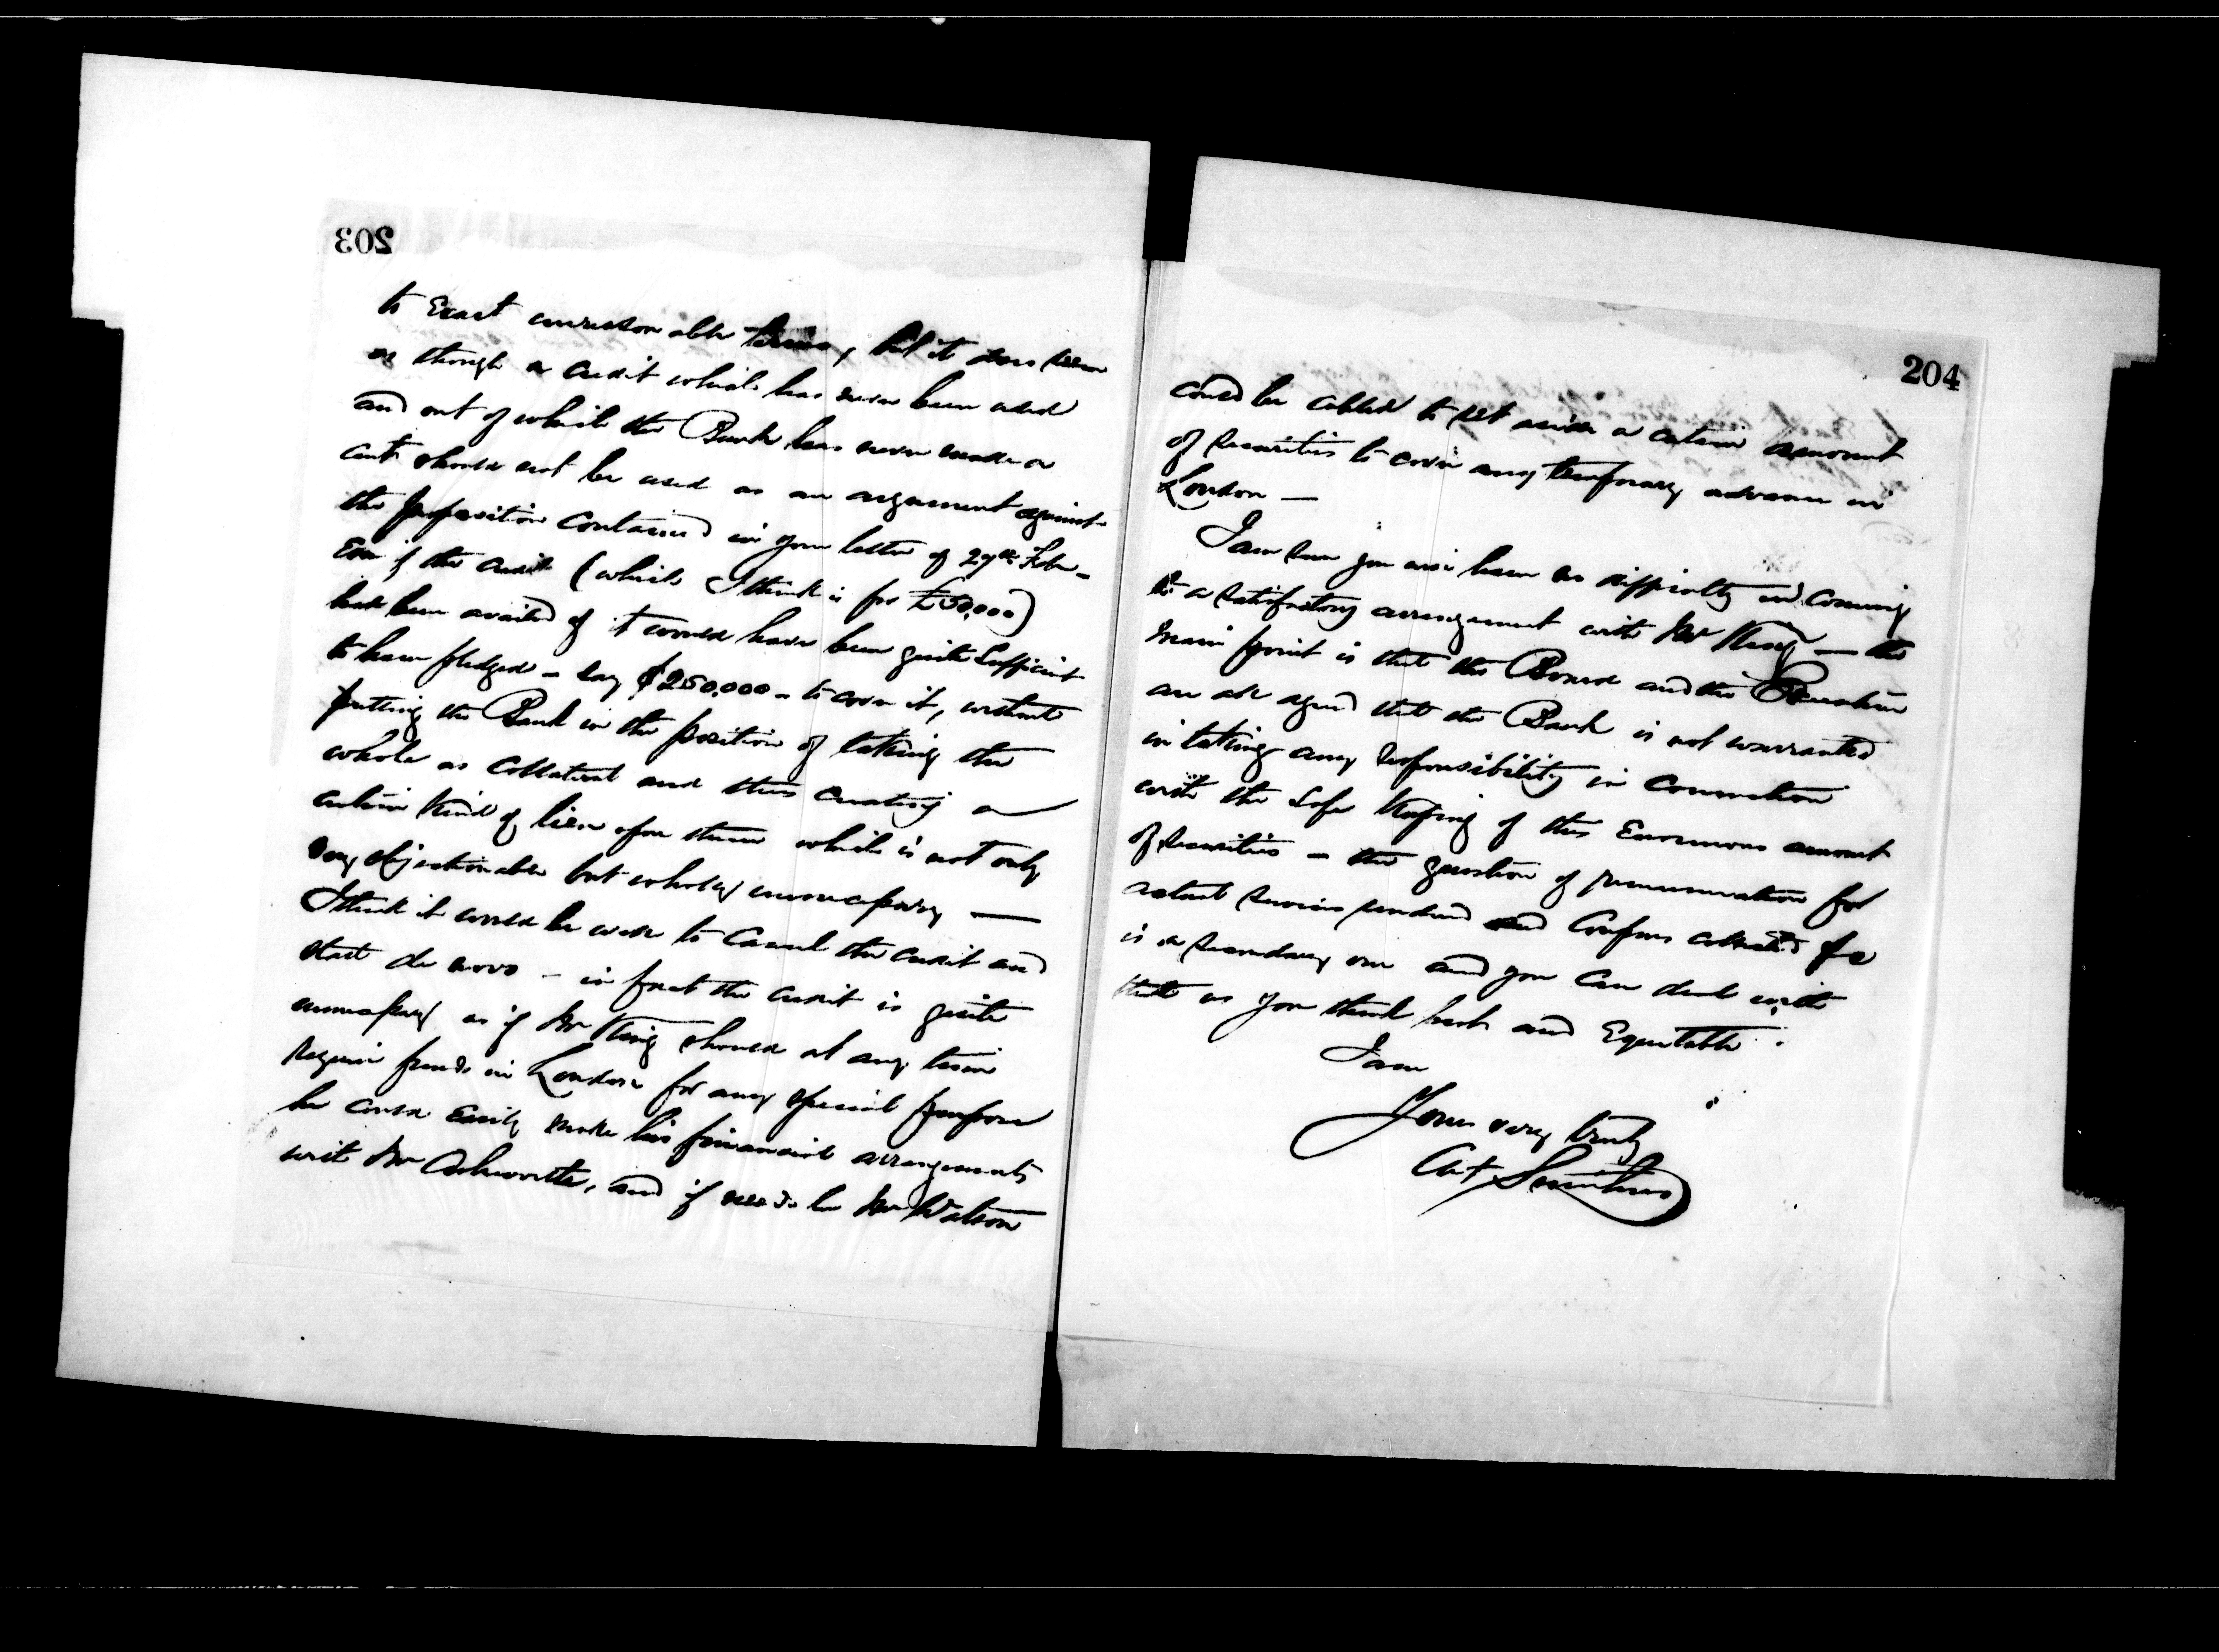 203
to Exact unreasonable terms, but it does seem
as though a credit which has never been used
and out of which the Bank has never made a
cent should not be used as an argument against
the proposition contained in your letter of 27th Feb -
Even if the credit (which I think is for £50,000)
had been availed of it would have been quite sufficient
to have pledged - say $250,000 - to cover it, without
putting the Bank in the position of taking the
whole as collateral and thus creating a
certain kind of lien upon them which is not only
very objectionable but wholly unnecessary —
I think it would be well to cancel the credit and
start de novo - in fact the credit is quite
unnecessary as if Mr King should at any time
require funds in London for any special purpose
he could Easily make his financial arrangements
with Mr Ashworth, and if needs be Mr Watson
204
could be cabled to set aside a certain amount
of securities to cover any temporary advance in
London —
I am sure you will have no difficulty in coming
to a satisfactory arrangement with Mr King — the
main point is that the Board and the Executive
are all agreed that the Bank is not warranted
in taking any responsibility in connection
with the safe keeping of this Enormous amount
of securities - the question of remuneration for
actual services rendered and Coupons collected &c
is a secondary one and you can deal with
that as you think best and Equitable.
I am
Yours very truly